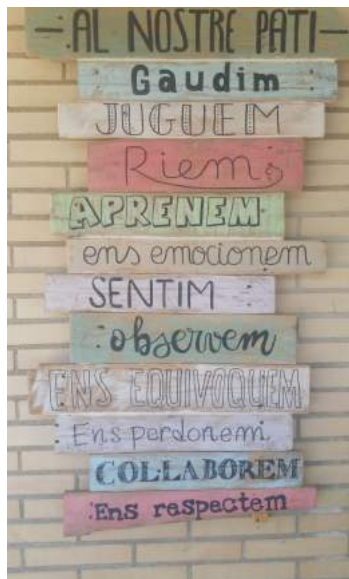 AL NOSTRE PATI
Gaudim
JUGUEM
Riem
APRENEM
ens emocionem
SENTIM
observem
ENS EQUIVOQUEM
Ens perdonem
COL·LABOREM
Ens respectem